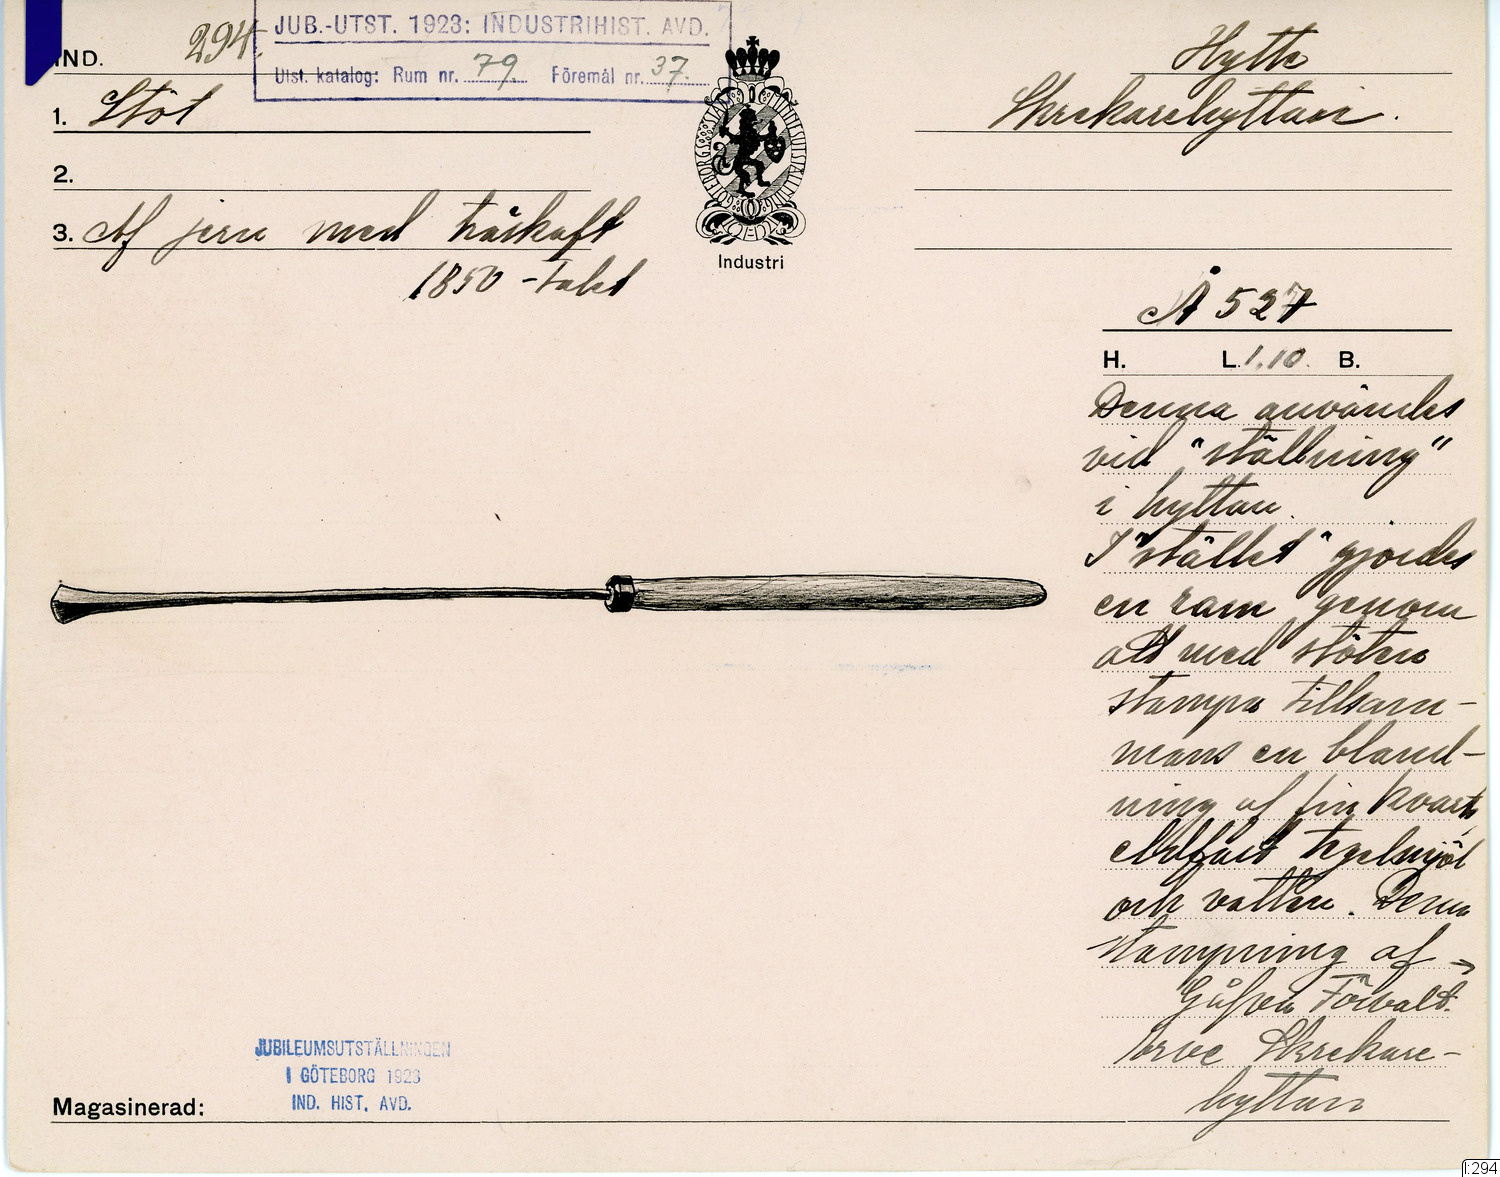 JUB.-UTST. 1923: INDUSTRIHIST. AVD.
Utst. katalog: Rum nr. 79. Föremål nr. 37.
IND. 294.
1. Stöt
2.
3. Af jern med träskaft
1850-talet
GÖTEBORGS STADS MINNESUTSTÄLLNING
Industri
Hytte
Skrekarehyttan.
Å 527
H. L. 1.10. B.
Denna användes
vid "ställning"
i hyttan.
I "stället" gjordes
en ram genom
att med stöten
stampa tillsam-
mans en bland-
ning af fin kvarts,
eldfast tegelmjöl
och vatten. Denna
stampning af →
Gåfva Förvalt.
Skrekare-
hyttan
JUBILEUMSUTSTÄLLNINGEN
I GÖTEBORG 1923
IND. HIST. AVD.
Magasinerad:
I:294